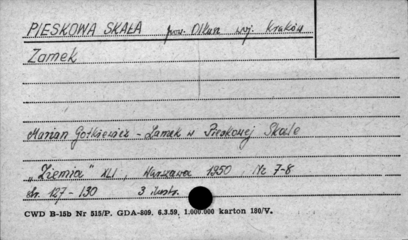 PIESKOWA SKAŁA pow. Olkusz woj. Kraków
Zamek
Marian Gotkiewicz - Zamek w Pieskowej Skale
„Ziemia" XLI, Warszawa 1950, Nr 7-8
str. 127 - 130 3 ilustr.
CWD B-15b Nr 515/P. GDA-809. 6.3.59. 1.000.000 karton 180/V.